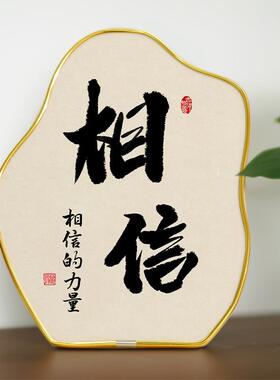 相信
相信的力量